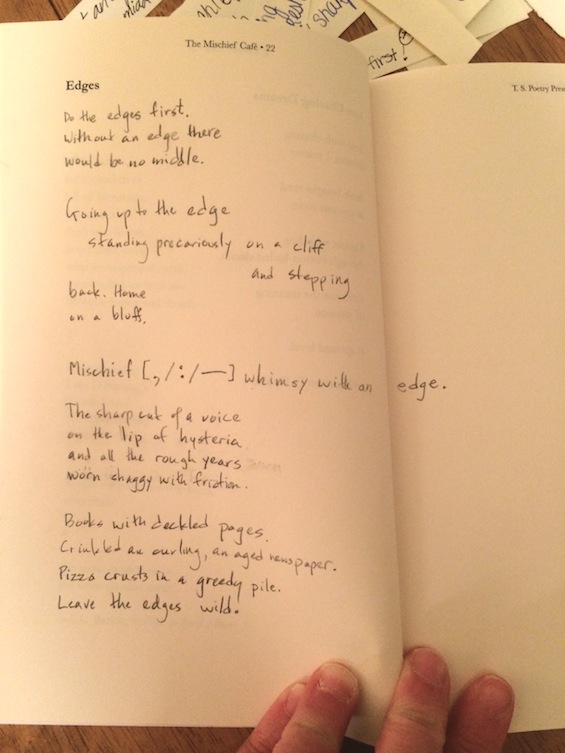 first!
The Mischief Café • 22
T. S. Poetry Pres
Edges
Do the edges first.
Without an edge there
would be no middle.
Going up to the edge
standing precariously on a cliff
and stepping
back. Home
on a bluff.
Mischief [,/:/—] whimsy with an edge.
The sharp cut of a voice
on the lip of hysteria
and all the rough years
worn shaggy with friction.
Books with deckled pages.
curling, an aged newspaper.
Pizza crusts in a greedy pile.
Leave the edges wild!